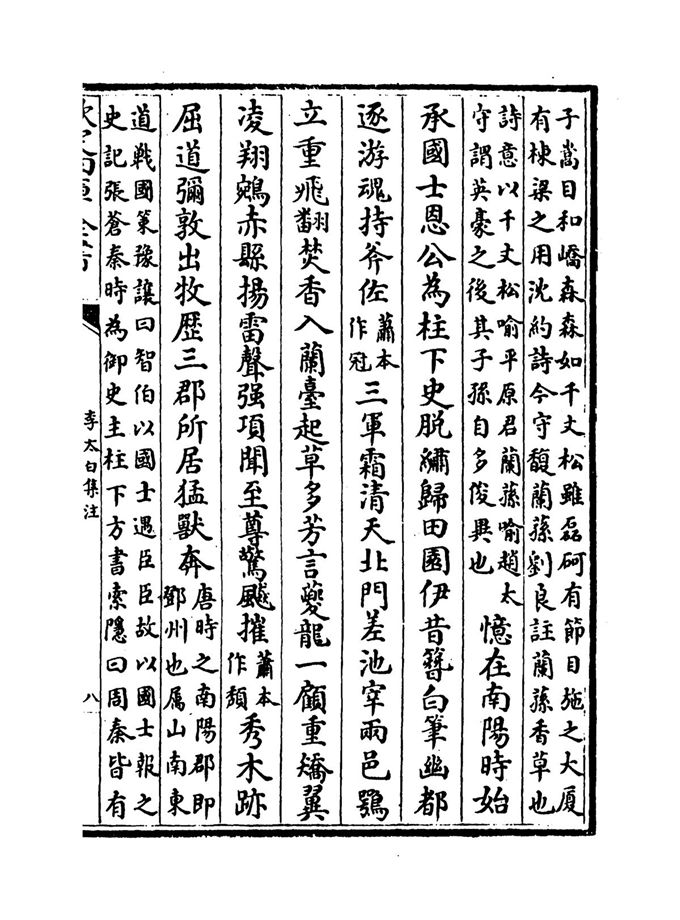 子嵩目和嶠森森如千丈松雖磊砢有節目施之大厦
有棟梁之用沈約詩今守馥蘭蓀劉良註蘭蓀香草也
詩意以千丈松喻平原君蘭蓀喻趙太
守謂英豪之後其子孫自多俊異也
憶在南陽時始
承國士恩公為柱下史脱繡歸田園伊昔簪白筆幽都
逐游魂持斧佐
蕭本
作冠
三軍霜清天北門差池宰兩邑鶚
立重飛翻焚香入蘭臺起草多芳言夔龍一顧重矯翼
凌翔鵷赤縣揚雷聲强項聞至尊驚飈摧
蕭本
作頽
秀木跡
屈道彌敦出牧歴三郡所居猛獸奔
唐時之南陽郡即
鄧州也屬山南東
道戰國策豫讓曰智伯以國士遇臣臣故以國士報之
史記張蒼秦時為御史主柱下方書索隱曰周秦皆有
李太白集注
八